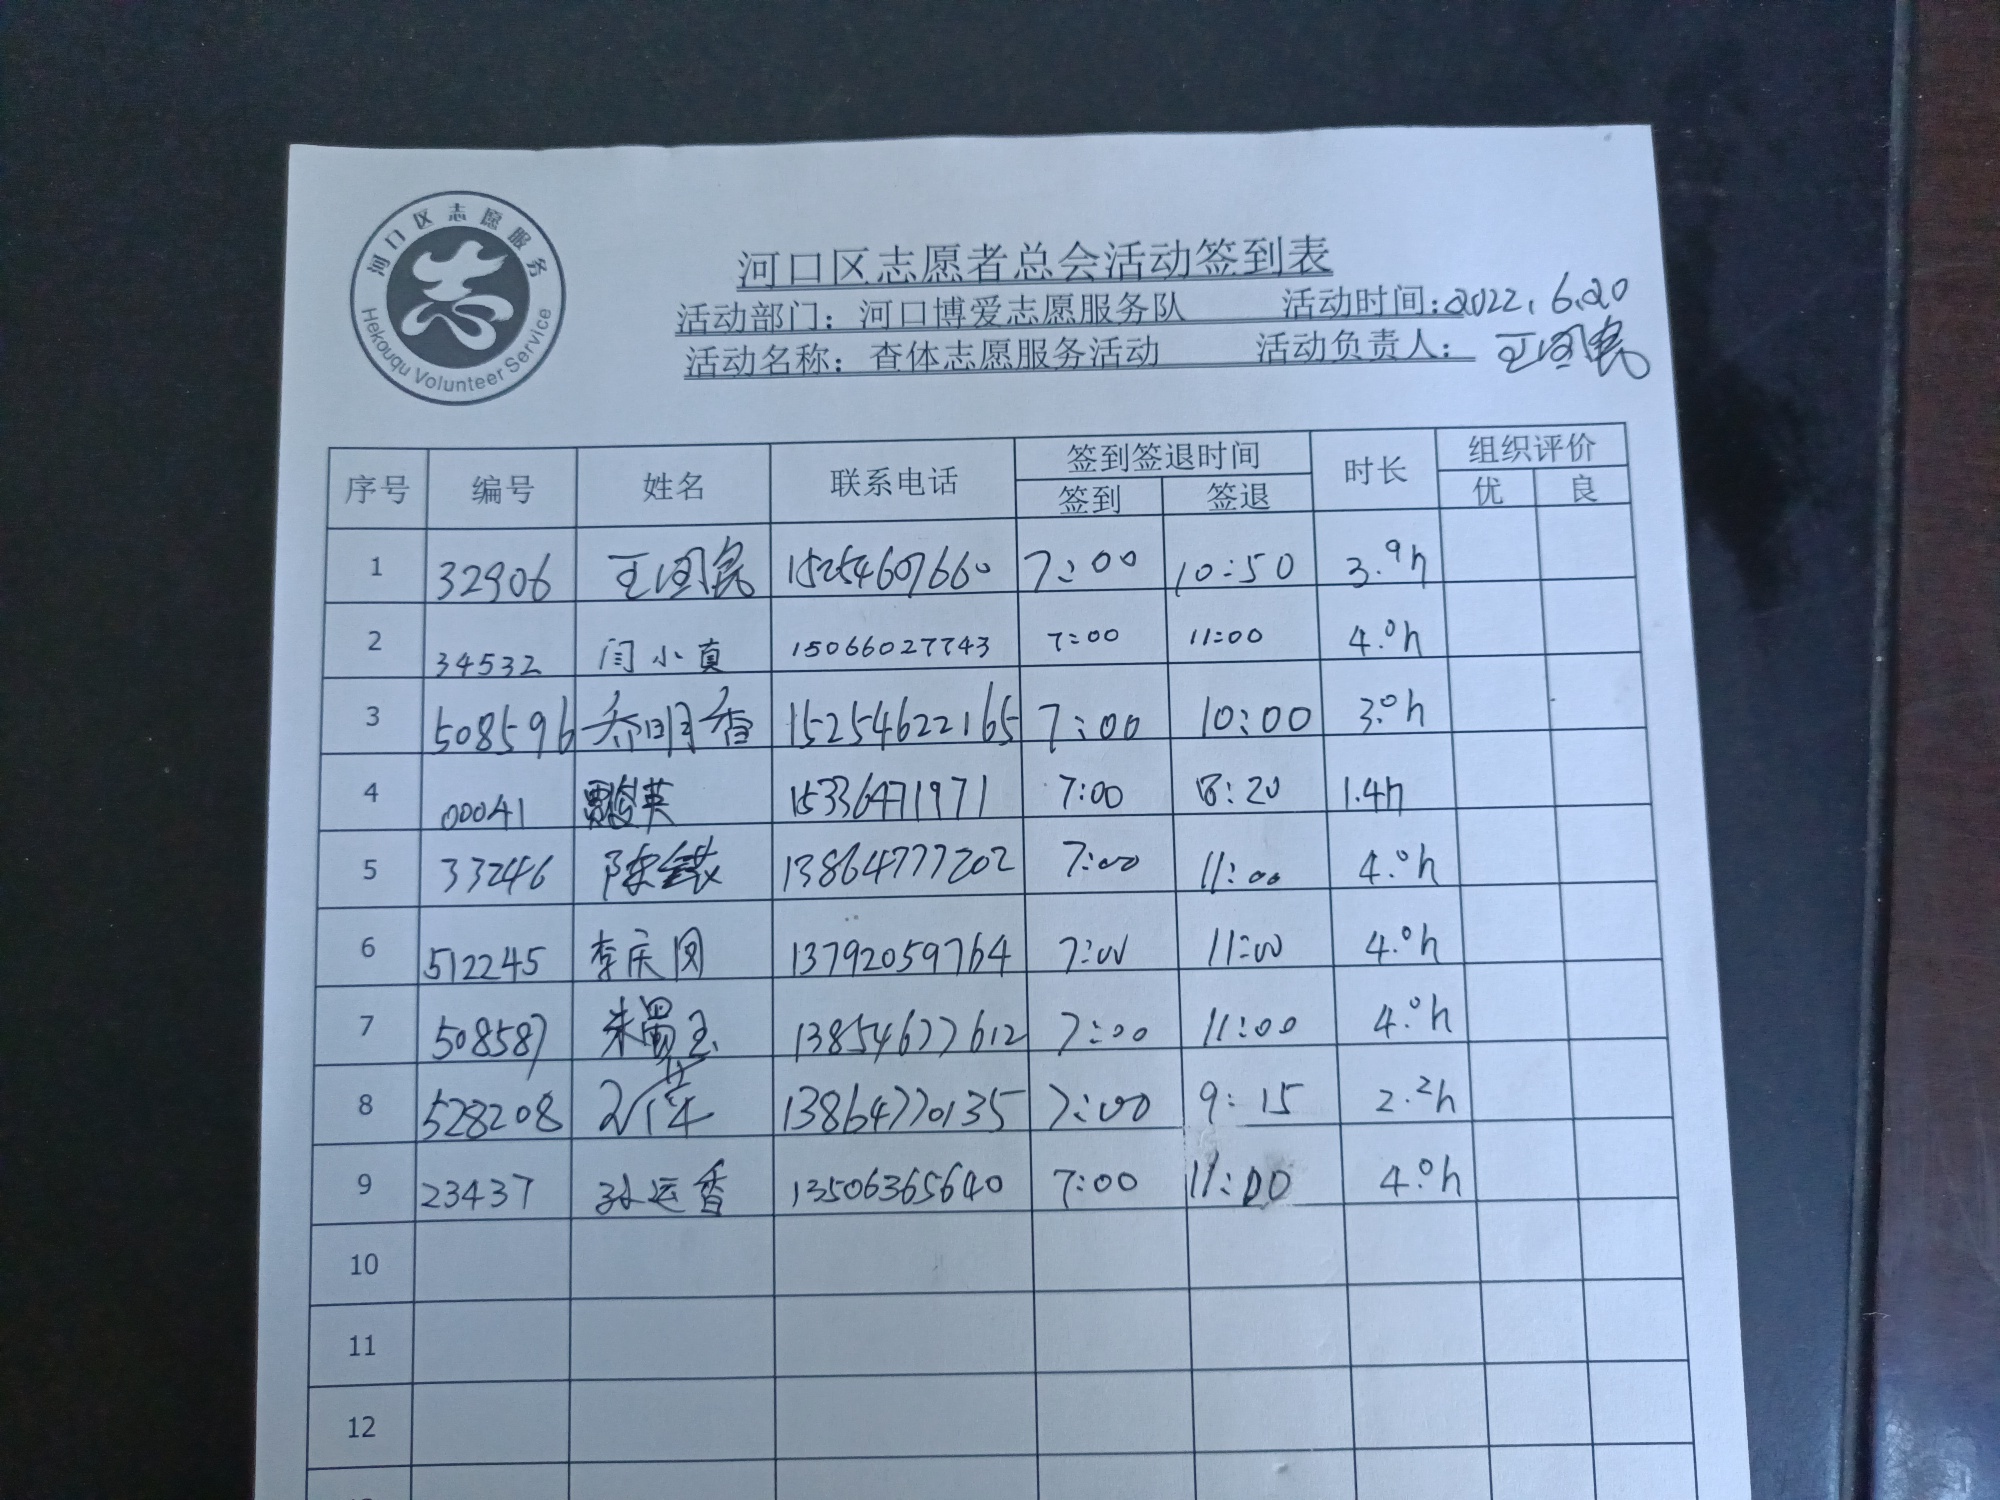 河口区志愿服务
Hekouqu Volunteer Service
河口区志愿者总会活动签到表
活动部门：河口博爱志愿服务队 活动时间：2022.6.20
活动名称：查体志愿服务活动 活动负责人：王国民
序号 编号 姓名 联系电话 签到签退时间 时长 组织评价
签到 签退 优 良
1 32906 王国民 15254607660 7:00 10:50 3.9h
2 34532 闫小真 15066027743 7:00 11:00 4.0h
3 508596 乔明香 15254622165 7:00 10:00 3.0h
4 00041 英 15336471971 7:00 8:20 1.4h
5 33246 陈 13864777202 7:00 11:00 4.0h
6 512245 李庆 13792059764 7:00 11:00 4.0h
7 508587 朱蜀玉 13854677612 7:00 11:00 4.0h
8 528208 13864770135 7:00 9:15 2.2h
9 23437 孙运香 13506365640 7:00 11:00 4.0h
10
11
12